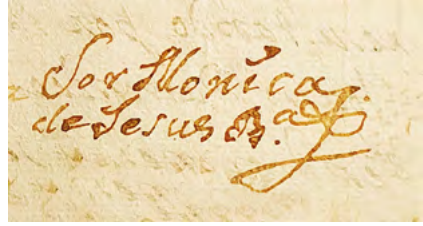 Sor Monica
de Jesus